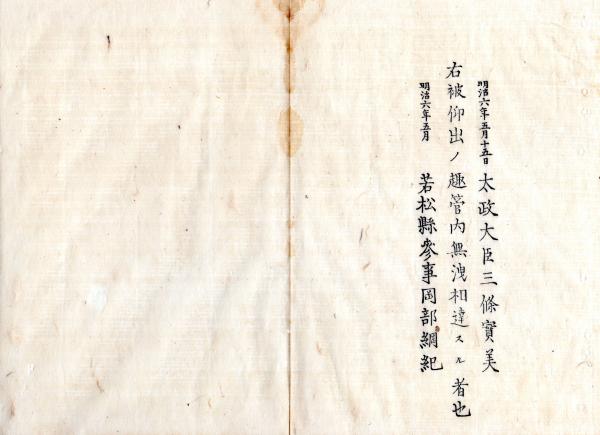 明治六年五月十五日 太政大臣三條實美
右被仰出ノ趣管内無洩相達スル者也
明治六年五月 若松縣參事岡部綱紀